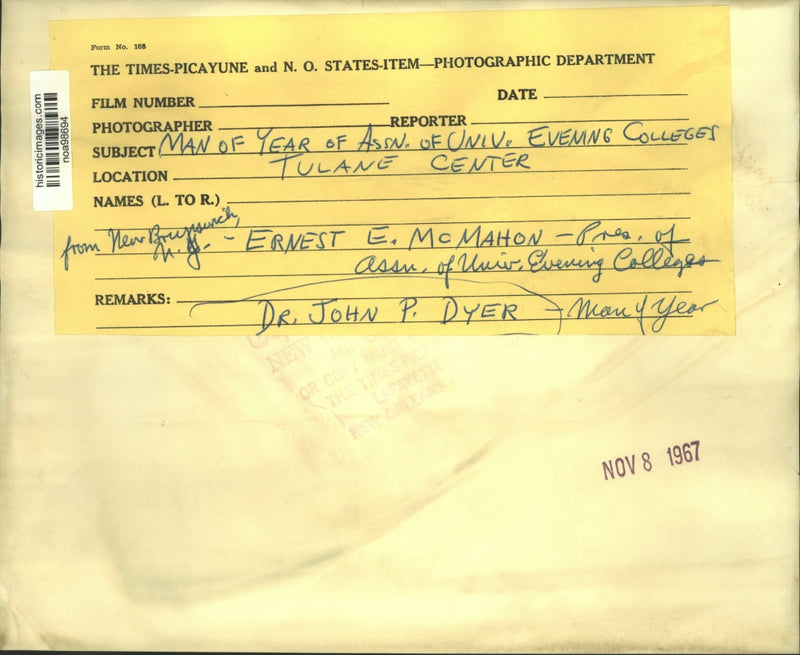 Form No. 108
THE TIMES-PICAYUNE and N. O. STATES-ITEM—PHOTOGRAPHIC DEPARTMENT
FILM NUMBER
DATE
PHOTOGRAPHER
REPORTER
SUBJECT MAN OF YEAR OF ASSN. OF UNIV. EVENING COLLEGES
LOCATION TULANE CENTER
NAMES (L. TO R.)
from New Brunswich,
N.J. - ERNEST E. MCMAHON - Pres. of
Assn. of Univ. Evening Colleges
REMARKS:
DR. JOHN P. DYER - Man of Year
historicimages.com
noa98694
NEW
OR COPY MUST
THE TIMES-PIC
LAFAYETTE
NEW ORLEANS
NOV 8 1967